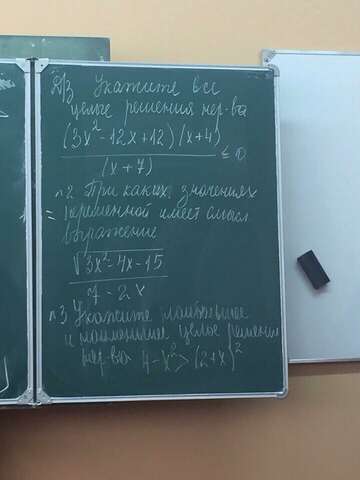 Д/З Укажите все
целые решения нер-ва
(3x² - 12x + 12)(x + 4)
(x + 7)
≤ 0
n2 При каких значениях
переменной имеет смысл
выражение
√3x² - 4x - 15
7 - 2x
n3 Укажите наибольшее
и наименьшее целое решение
нер-ва 4 - x² > (2 + x)²